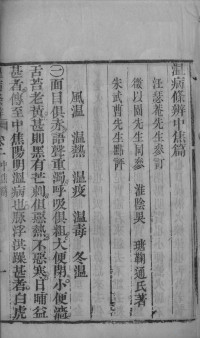 溫病條辨中焦篇
汪瑟菴先生參訂
徵以園先生同參　淮陰吳　瑭鞠通氏著
朱武曹先生點評
風溫　溫熱　溫疫　溫毒　冬溫
㊀面目俱赤語聲重濁呼吸俱粗大便閉小便濇
舌苔老黃甚則黑有芒刺但惡熱不惡寒日晡益
甚者傳至中焦陽明溫病也脈浮洪躁甚者白虎